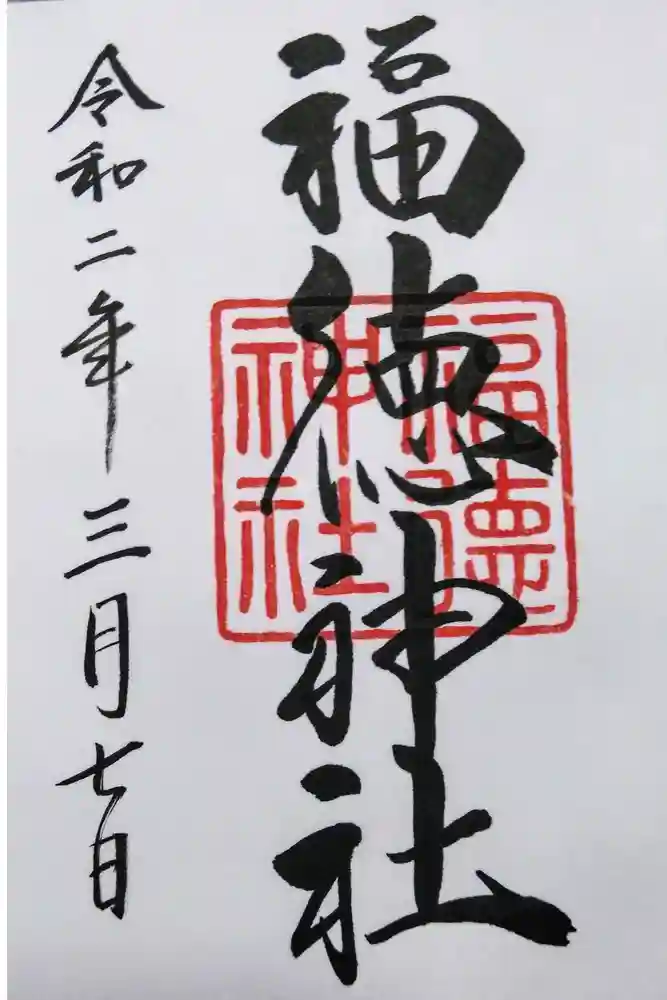 福徳神社
福德
神社
令和二年三月七日